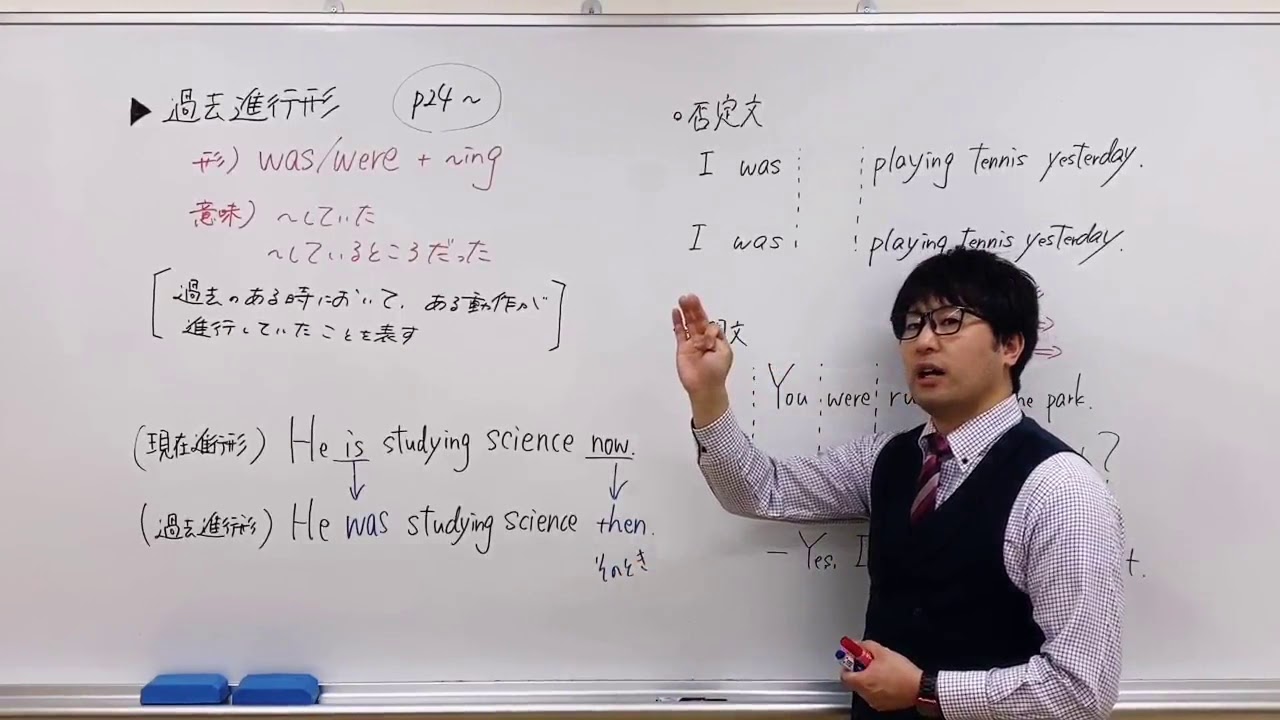 ▶ 過去進行形 p24～
形) was/were + ～ing
意味) ～していた
～しているところだった
[過去のある時において、ある動作が
進行していたことを表す]
(現在進行形) He is studying science now.
(過去進行形) He was studying science then.
そのとき
。否定文
I was playing tennis yesterday.
I was playing tennis yesterday.
文
You were ru he park.
?
- Yes, I t.